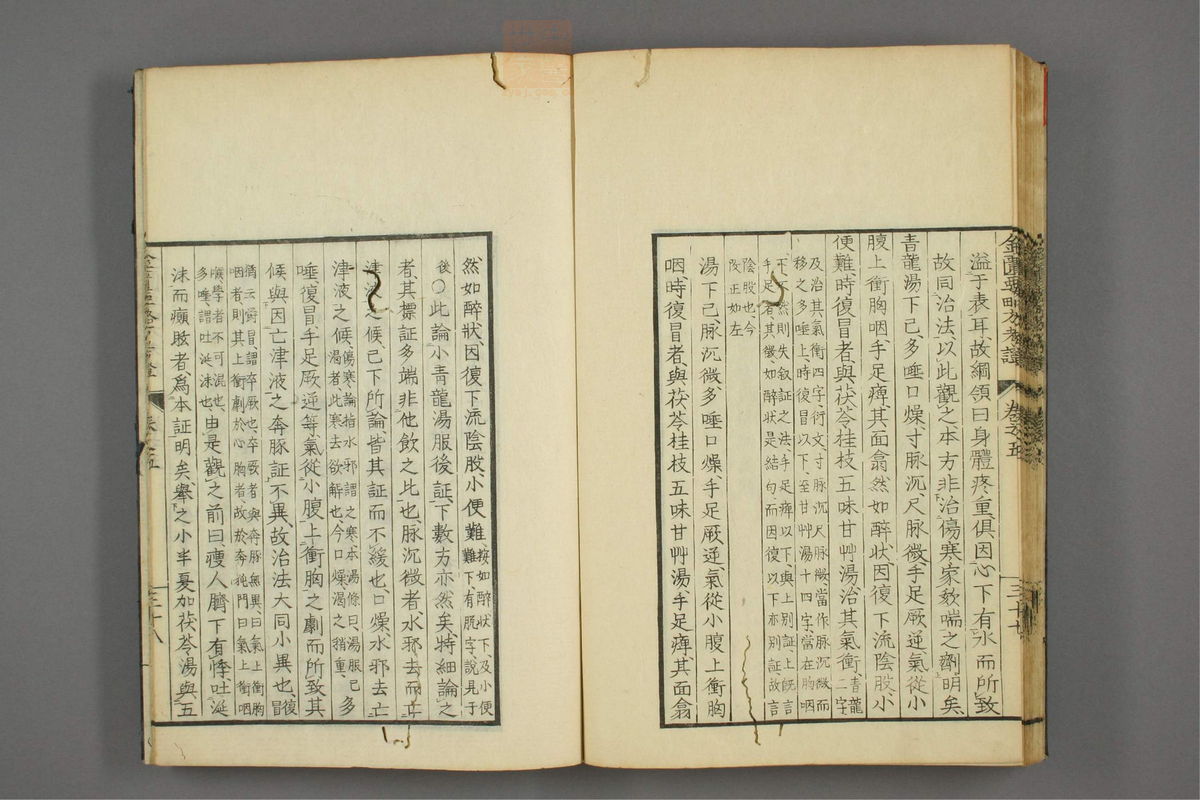 溢于表耳、故綱領曰身體疼重、俱因心下有水而所致、
故同治法、以此觀之、本方非治傷寒家欬喘之劑明矣、
青龍湯下已、多唾口燥、寸脉沉、尺脉微、手足厥逆、氣從小
腹上衝胸咽、手足痺、其面翕然如醉狀、因復下流陰股、小
便難、時復冒者、與茯苓桂枝五味甘艸湯、治其氣衝、青龍二字
及治其氣衝四字、衍文、寸脉沉、尺脉微、當作脉沉微、而
移之多唾上、時復冒以下、至甘艸湯十四字、當在胸咽
下、不然則失叙証之法、手足痺以下、與上別証、上既言
手足者、其徵、如醉狀是結句、而因復以下亦別証、故言
陰股也、今
改正如左
湯下已、脉沉微、多唾口燥、手足厥逆、氣從小腹上衝胸
咽、時復冒者、與茯苓桂枝五味甘艸湯、手足痺、其面翕
金匱要略方考證 卷之五 三十七
然如醉狀、因復下流陰股、小便難、按如醉狀下、及小便
難下、有脫字、說見于
後、○此論小青龍湯服後証、下數方亦然矣、特細論之
者、其標証多端、非他飲之比也、脉沉微者、水邪去而亡
津液之候、已下所論、皆其証而不緩也、口燥、水邪去亡
津液之候、傷寒論指水邪謂之寒、本湯條曰、湯服已
渴者、此寒去欲解也、今口燥渴之稍重、多
唾、復冒、手足厥逆等、氣從小腹上衝胸之劇而所致、其
候與因亡津液之奔豚証不異、故治法大同小異也、復冒
猶云鬱冒、謂卒厥也、卒厥者、與奔豚無異、曰氣上衝胸
咽者、則其上衝劇於心胸者、故於奔豚門曰氣上衝咽
喉、學者不可混也、
多唾、謂吐涎沫也、由是觀之、前曰瘦人臍下有悸、吐涎
沫而癲眩者、爲本証明矣、舉之小半夏加茯苓湯與五
三十八